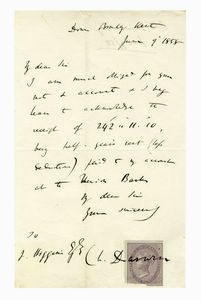 Down Bromley Kent
June 9 1858
My dear Sir
I am much obliged for your
note & account & I beg
leave to acknowledge the
receipt of 242 " 11 " 10,
being half-years rent (less
deductions) paid to my account
at the Union Bank
My dear Sir
Yours sincerely
To
J. Higgins Esq
Ch. Darwin